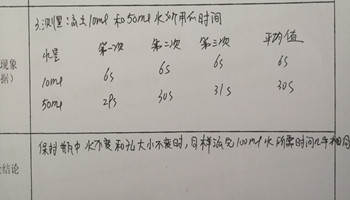 3.测量:流出10ml和50ml水所用的时间
水量 第一次 第二次 第三次 平均值
10ml 6s 6s 6s 6s
50ml 29s 30s 31s 30s
现象
据)
保持瓶中水不变和孔大小不变时,同样流完100ml水所需时间几乎相同
结论